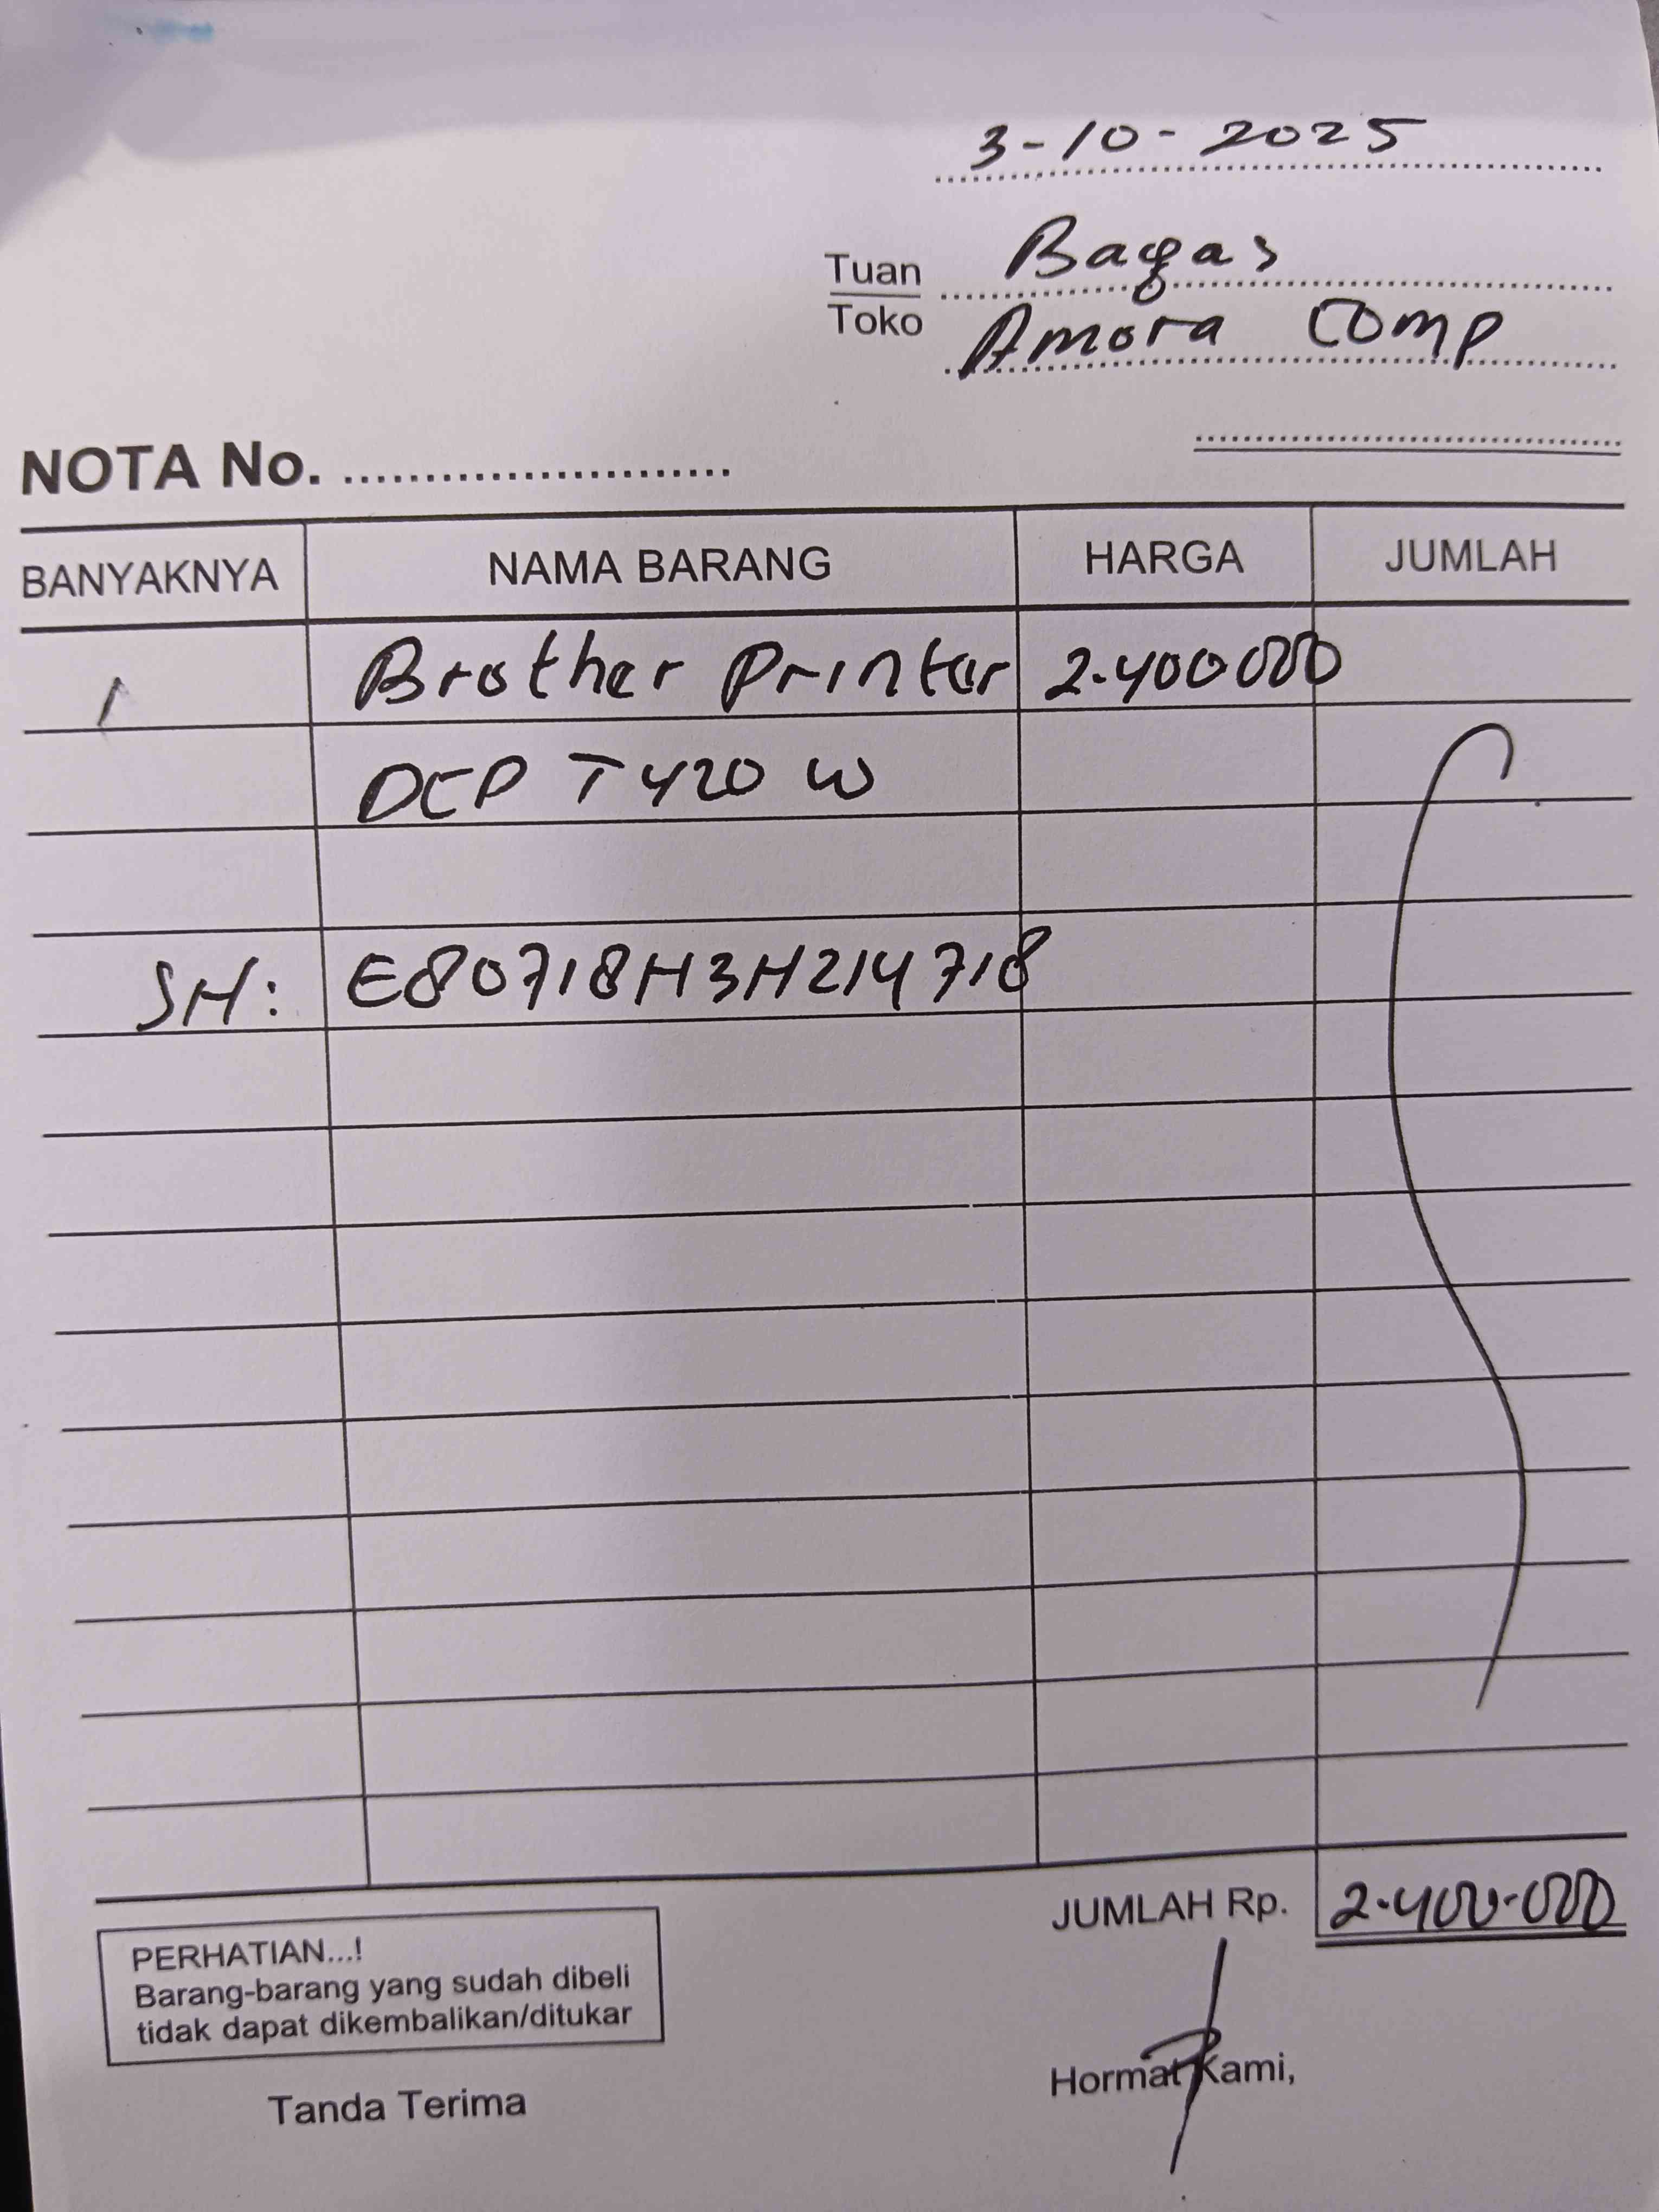 3-10-2025
Tuan Bagas
Toko Amora Comp
NOTA No. ........................
BANYAKNYA NAMA BARANG HARGA JUMLAH
1 Brother Printer 2.400000
DCP T420 W
SH: E80718H3H214718
JUMLAH Rp. 2.400.000
PERHATIAN...!
Barang-barang yang sudah dibeli
tidak dapat dikembalikan/ditukar
Tanda Terima
Hormat Kami,